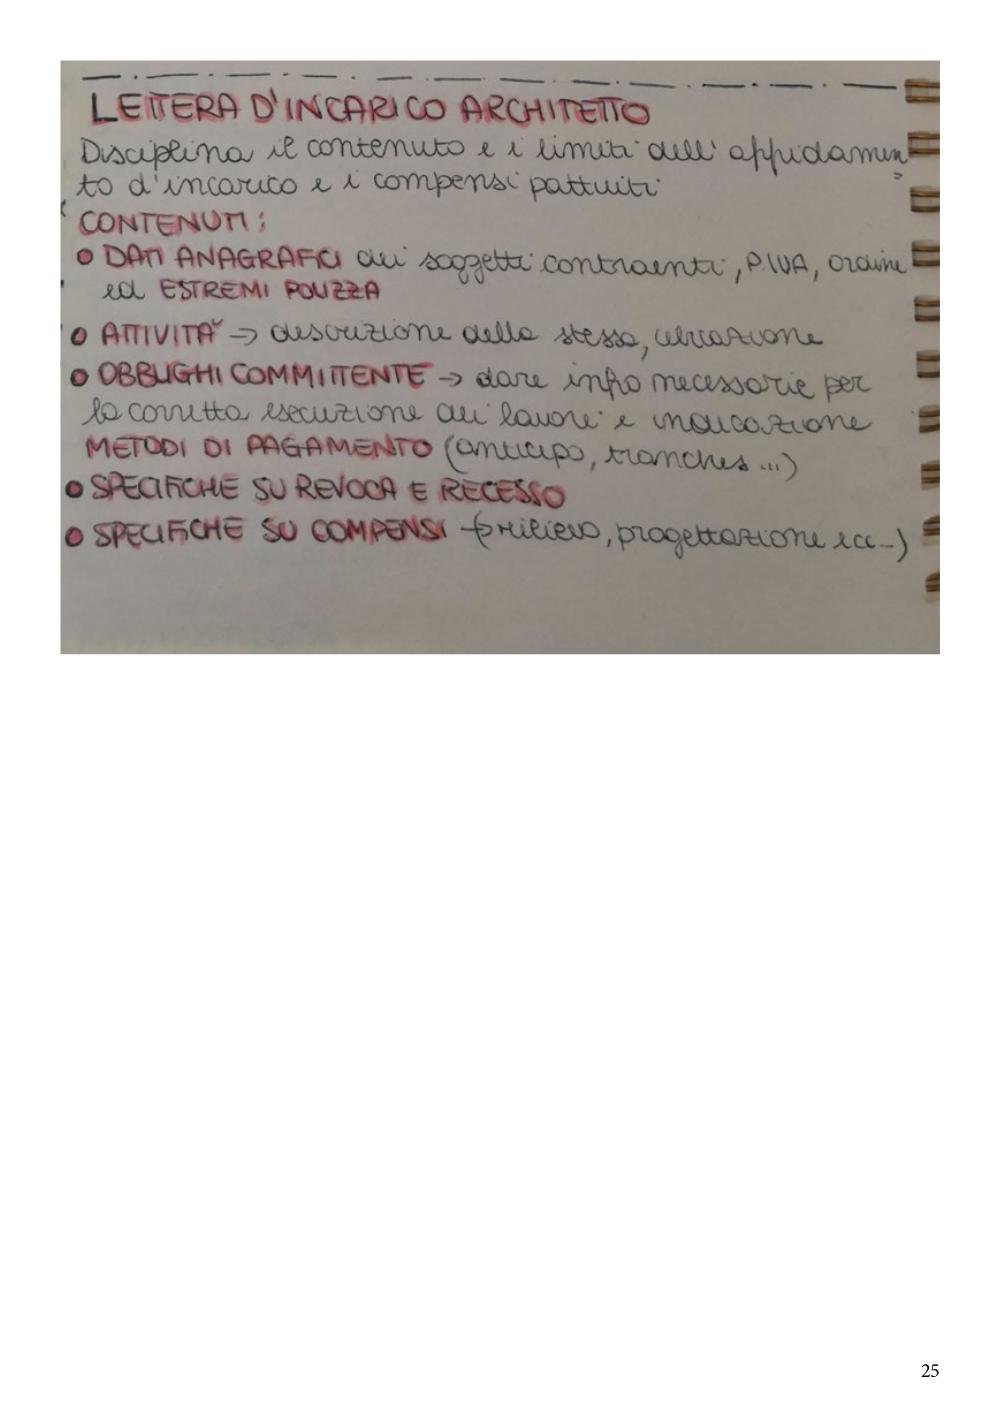 LETTERA D'INCARICO ARCHITETTO
Disciplina il contenuto e i limiti dell'affidamen=
to d'incarico e i compensi pattuiti
CONTENUTI:
• DATI ANAGRAFICI dei soggetti contraenti, P.IVA, ordine
ed ESTREMI POLIZZA
• ATTIVITÀ → descrizione della stessa, ubicazione
• OBBLIGHI COMMITTENTE → dare info necessarie per
la corretta esecuzione dei lavori e indicazione
METODI DI PAGAMENTO (anticipo, tranches...)
• SPECIFICHE SU REVOCA E RECESSO
• SPECIFICHE SU COMPENSI (rilievo, progettazione ecc..)
25